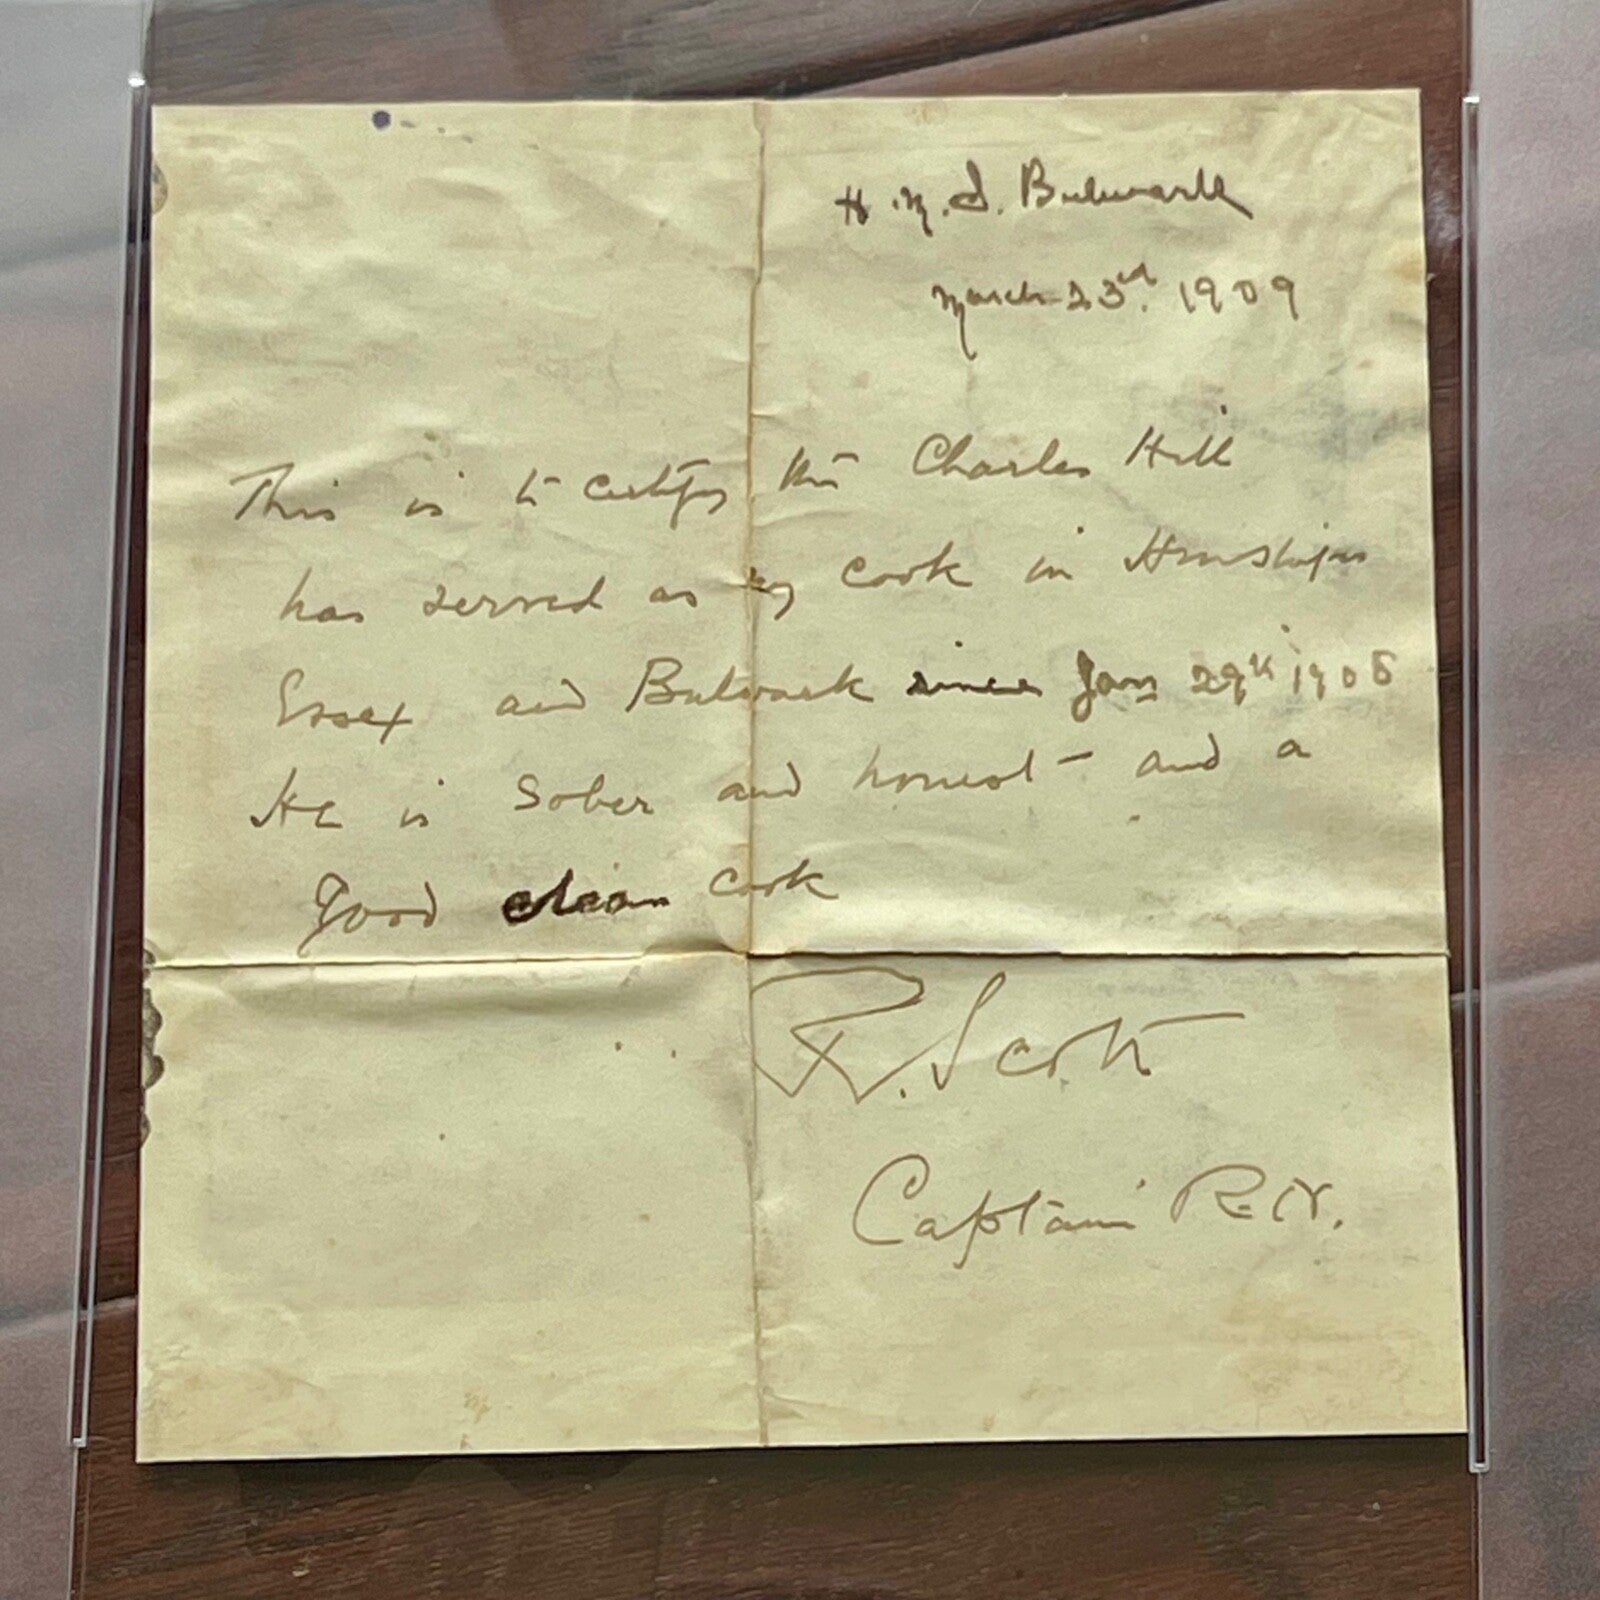 H.M.S. Bulwark
March 23rd. 1909
This is to certify that Charles Hill
has served as my cook in HM Ships
Essex and Bulwark since Jan 29th 1908
He is sober and honest - and a
good clean cook
R. Scott
Captain R.N.